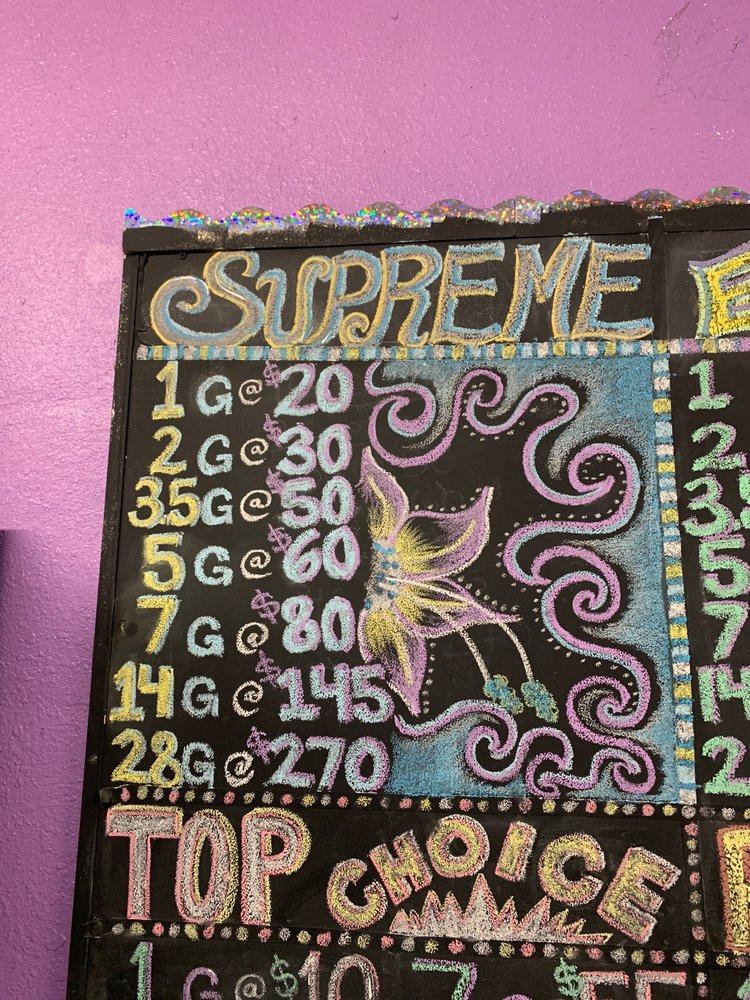 SUPREME
1 G @ $20
2 G @ $30
3.5 G @ $50
5 G @ $60
7 G @ $80
14 G @ $145
28 G @ $270
1
2
3.5
5
7
14
2
TOP CHOICE
1 G @ $10 7